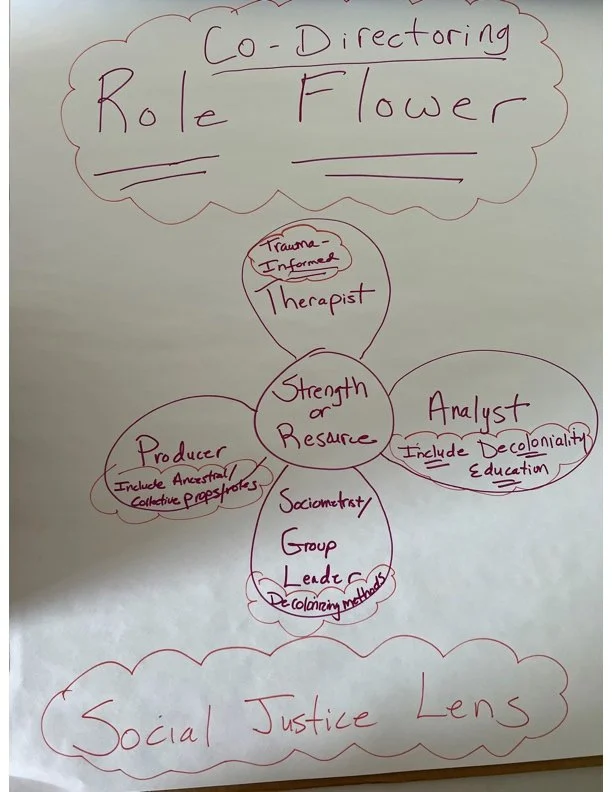 Co-Directoring
Role Flower
Trauma-
Informed
Therapist
Strength
or
Resource
Analyst
Include Decoloniality
Education
Producer
Include Ancestral/
Collective props/roles
Sociometrist/
Group
Leader
Decolonizing methods
Social Justice Lens